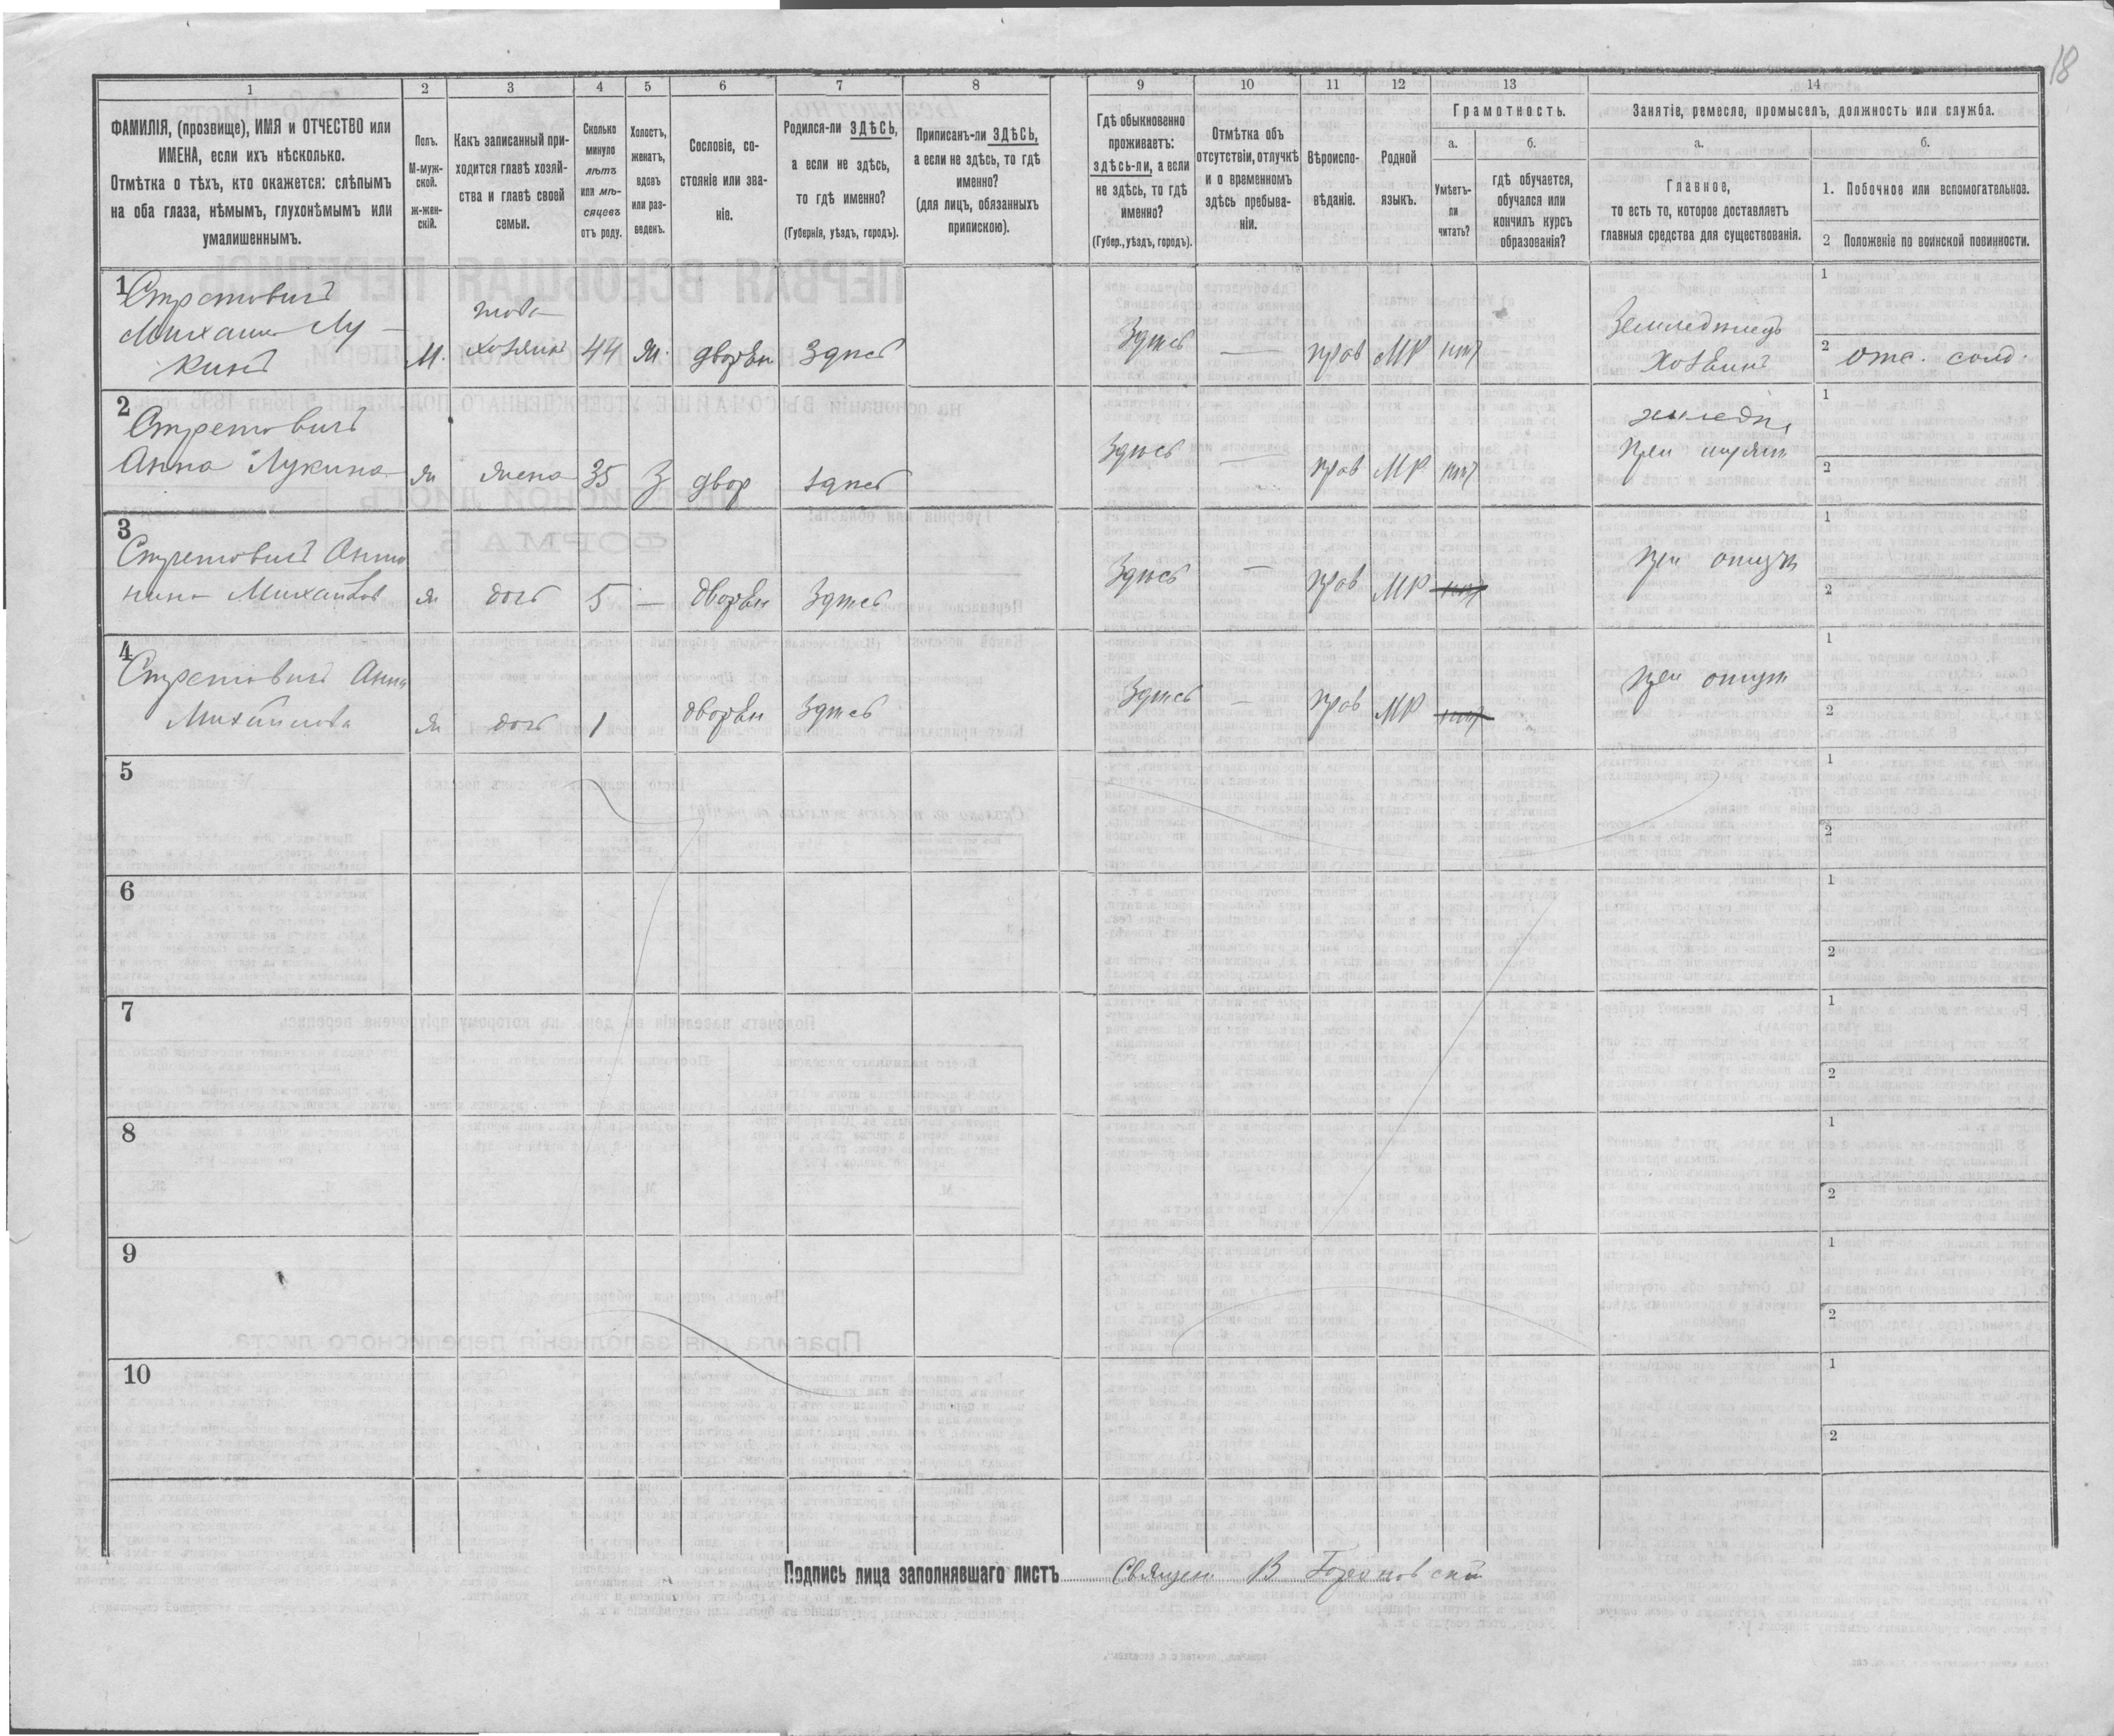 18
1 2 3 4 5 6 7 8 9 10 11 12 13 14
ФАМИЛІЯ, (прозвище), ИМЯ и ОТЧЕСТВО или
ИМЕНА, если ихъ нѣсколько.
Отмѣтка о тѣхъ, кто окажется: слѣпымъ
на оба глаза, нѣмымъ, глухонѣмымъ или
умалишеннымъ.
Полъ.
М-муж-
ской.
Ж-жен-
скій.
Какъ записанный при-
ходится главѣ хозяй-
ства и главѣ своей
семьи.
Сколько
минуло
лѣтъ
или мѣ-
сяцевъ
отъ роду.
Холостъ,
женатъ,
вдовъ
или раз-
веденъ.
Сословіе, со-
стояніе или зва-
ніе.
Родился-ли ЗДѢСЬ,
а если не здѣсь,
то гдѣ именно?
(Губернія, уѣздъ, городъ).
Приписанъ-ли ЗДѢСЬ,
а если не здѣсь, то гдѣ
именно?
(для лицъ, обязанныхъ
припискою).
Гдѣ обыкновенно
проживаетъ:
здѣсь-ли, а если
не здѣсь, то гдѣ
именно?
(Губер., уѣздъ, городъ).
Отмѣтка объ
отсутствіи, отлучкѣ
и о временномъ
здѣсь пребыва-
ніи.
Вѣроиспо-
вѣданіе.
Родной
языкъ.
Грамотность.
а.
Умѣетъ-
ли
читать?
б.
гдѣ обучается,
обучался или
кончилъ курсъ
образованія?
Занятіе, ремесло, промыселъ, должность или служба.
а.
Главное,
то есть то, которое доставляетъ
главныя средства для существованія.
б.
1. Побочное или вспомогательное.
2 Положеніе по воинской повинности.
1
Лу-
кинъ
М. хозяинъ 44 ж. дворян здѣсь
Здѣсь — прав МР нѣт
Хозяинъ
1
2 отс. солд.
2
Анна Лукина
ж жена 35 З двор здѣсь
Здѣсь — прав МР нѣт
при
1
2
3
ж дочь 5 — дворян Здѣсь
Здѣсь — прав МР нѣт
при отцѣ
1
2
4
Анна
Михайлова
ж дочь 1 дворян Здѣсь
Здѣсь — прав МР нѣт
при отцѣ
1
2
5
1
2
6
1
2
7
1
2
8
1
2
9
1
2
10
1
2
Подпись лица заполнявшаго листъ Священ В